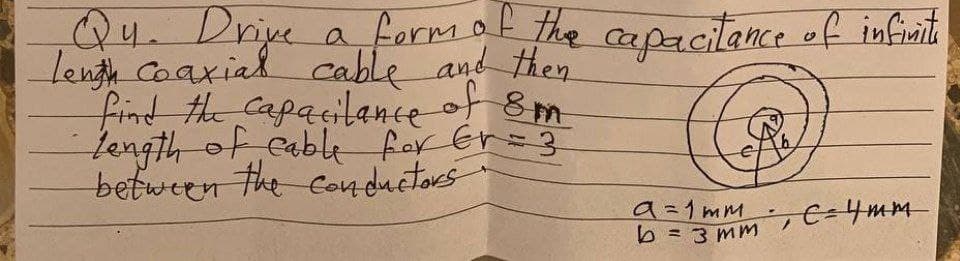 Q4. Drive a form of the capacitance of infinite
length coaxial cable and then
find the capacitance of 8m
length of cable for Er = 3
between the conductors
a b c
a = 1 mm ; , C = 4 mm
b = 3 mm